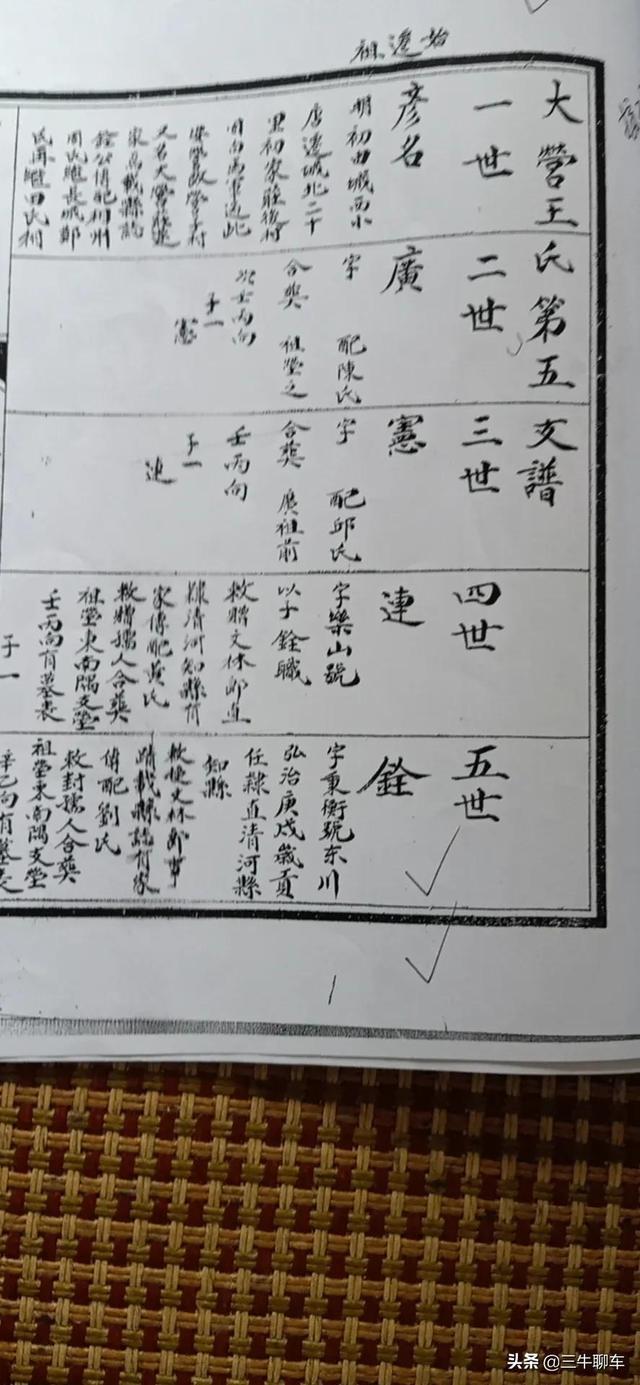 始遷祖
大營王氏第五支譜
一世
彥名
明初由城西小
唐遷城北二十
里初家莊後村
周南馬軍近此
營改營子村
又名大營
家焉載縣誌
銓公傳配相州
周氏繼長城鄭
氏再繼田氏相
二世
廣
字 配陳氏
合葬 祖塋之
次壬丙向
子一
憲
三世
憲
字 配邱氏
合葬 廣祖前
壬丙向
子一
連
四世
連
字樂山號
以子銓職
敕贈文林郎直
隸清河知縣有
家傳配黃氏
敕贈孺人合葬
祖塋東南隅支塋
壬丙向有墓表
子一
五世
銓
字秉衡號东川
弘治庚戌歲貢
任隸直清河縣
知縣
敕授文林郎事
蹟載縣誌有家
傳配劉氏
敕封孺人合葬
祖塋東南隅支塋
辛乙向有墓表
头条 @三牛聊车